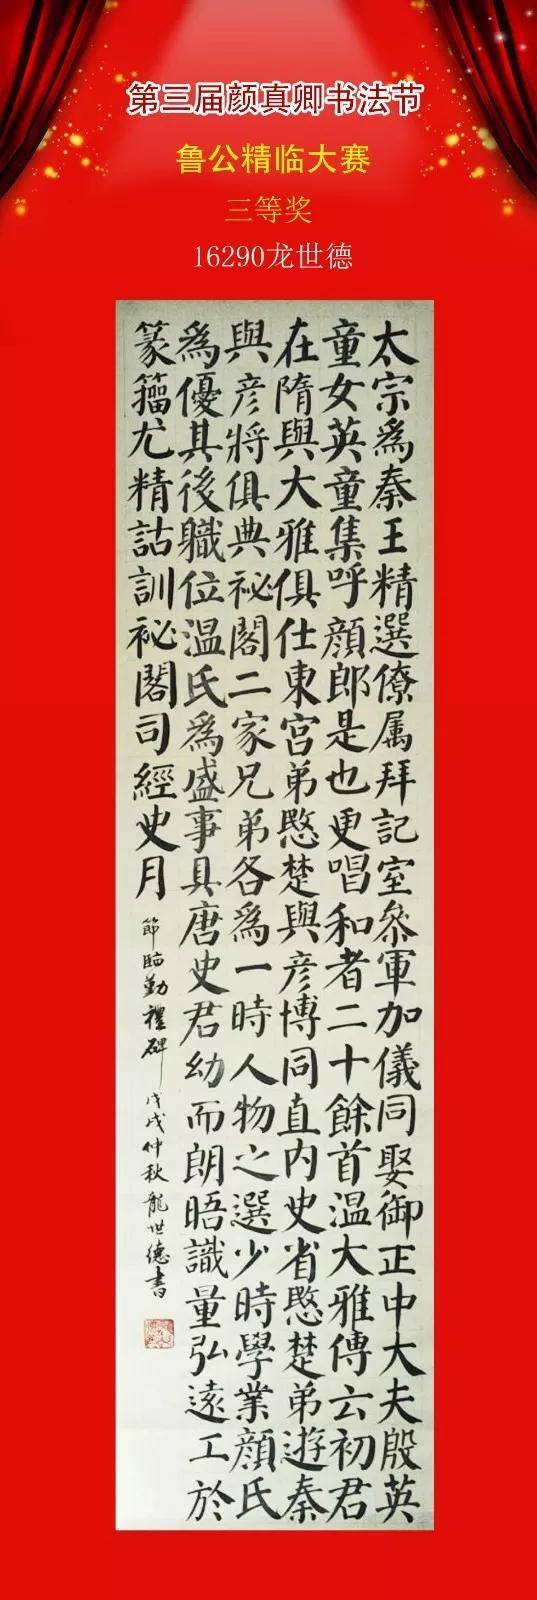 第三届颜真卿书法节
鲁公精临大赛
三等奖
16290龙世德
太宗爲秦王精選僚属拜記室參軍加儀同娶御正中大夫殷英
童女英童集呼顔郎是也更唱和者二十餘首温大雅傳云初君
在隋與大雅俱仕東宫弟愍楚與彦博同直内史省愍楚弟遊秦
與彦將俱典祕閣二家兄弟各爲一時人物之選少時學業顔氏
爲優其後職位温氏爲盛事具唐史君幼而朗晤識量弘遠工於
篆籀尤精詁訓祕閣司經史月
節臨勤禮碑 戊戌仲秋龍世德書